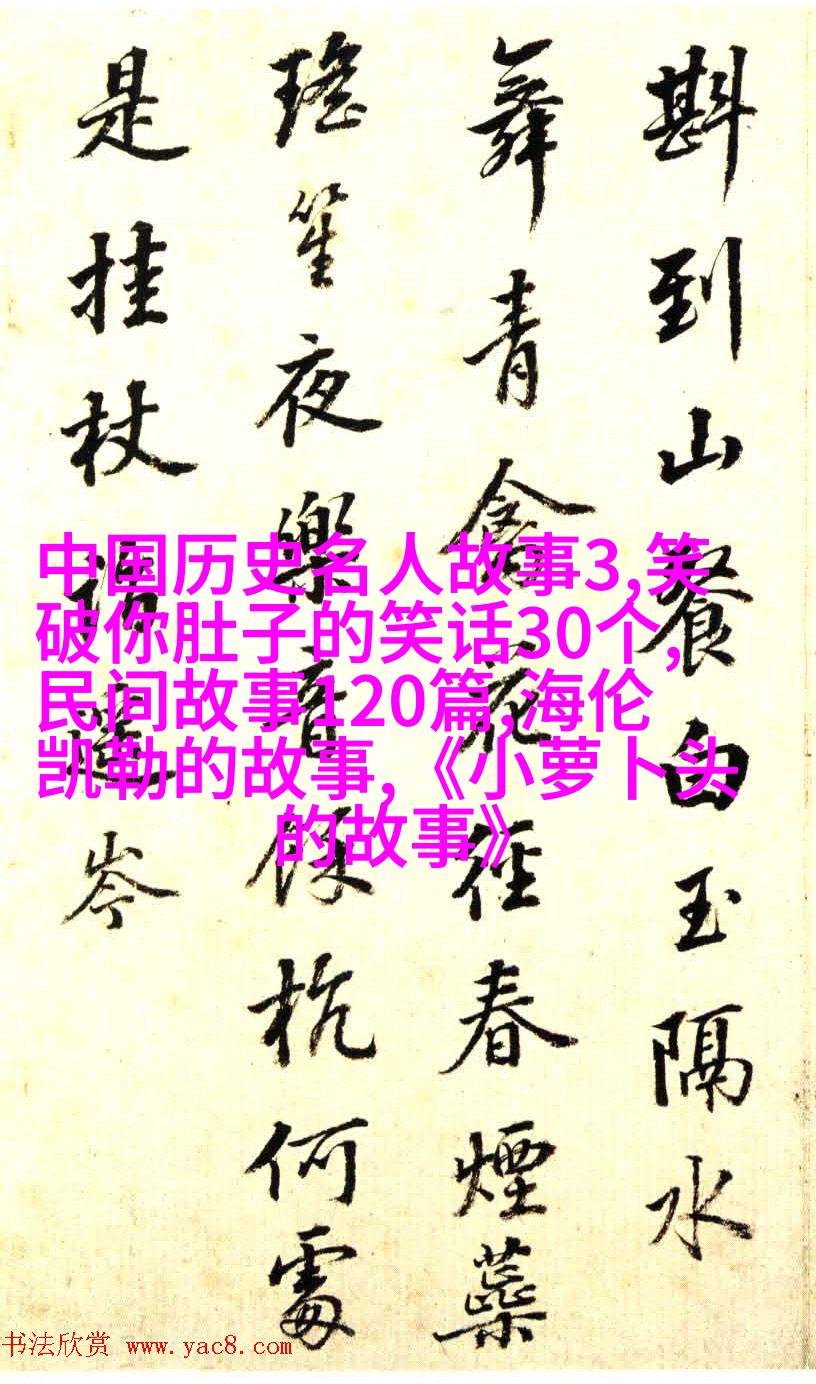 斟到山餐白玉隔水
舞青禽花徑春煙蘂
瑤笙夜樂音餘杭何處
是挂杖岑
中国历史名人故事3,笑
破你肚子的笑话30个,
民间故事120篇,海伦
凯勒的故事,《小萝卜头
的故事》
书法欣赏 www.yac8.com